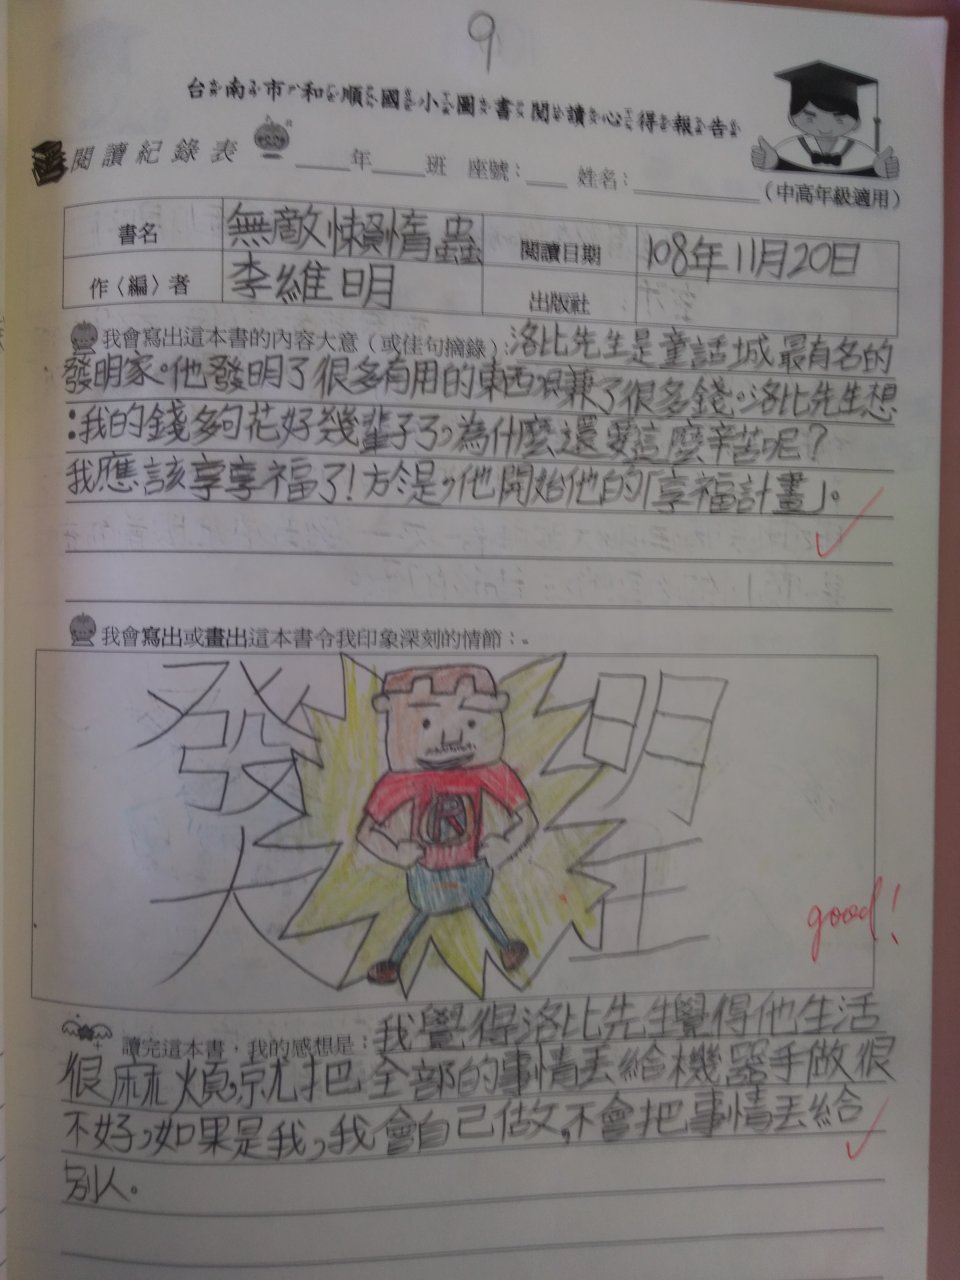 9
台南市和順國小圖書閱讀心得報告
閱讀紀錄表 ____年____班 座號：____ 姓名：__________
（中高年級適用）
書名 無敵懶惰蟲 閱讀日期 108年11月20日
作〈編〉者 李維明 出版社
我會寫出這本書的內容大意（或佳句摘錄）：洛比先生是童話城最有名的
發明家。他發明了很多有用的東西,兼了很多錢。洛比先生想
：我的錢多夠花好幾輩子了,為什麼還要這麼辛苦呢？
我應該享享福了！於是,他開始他的「享福計畫」。
我會寫出或畫出這本書令我印象深刻的情節：
發 明
R
大 王
good!
讀完這本書，我的感想是：我覺得洛比先生覺得他生活
很麻煩,就把全部的事情丟給機器手做很
不好,如果是我,我會自己做,不會把事情丟給
別人。